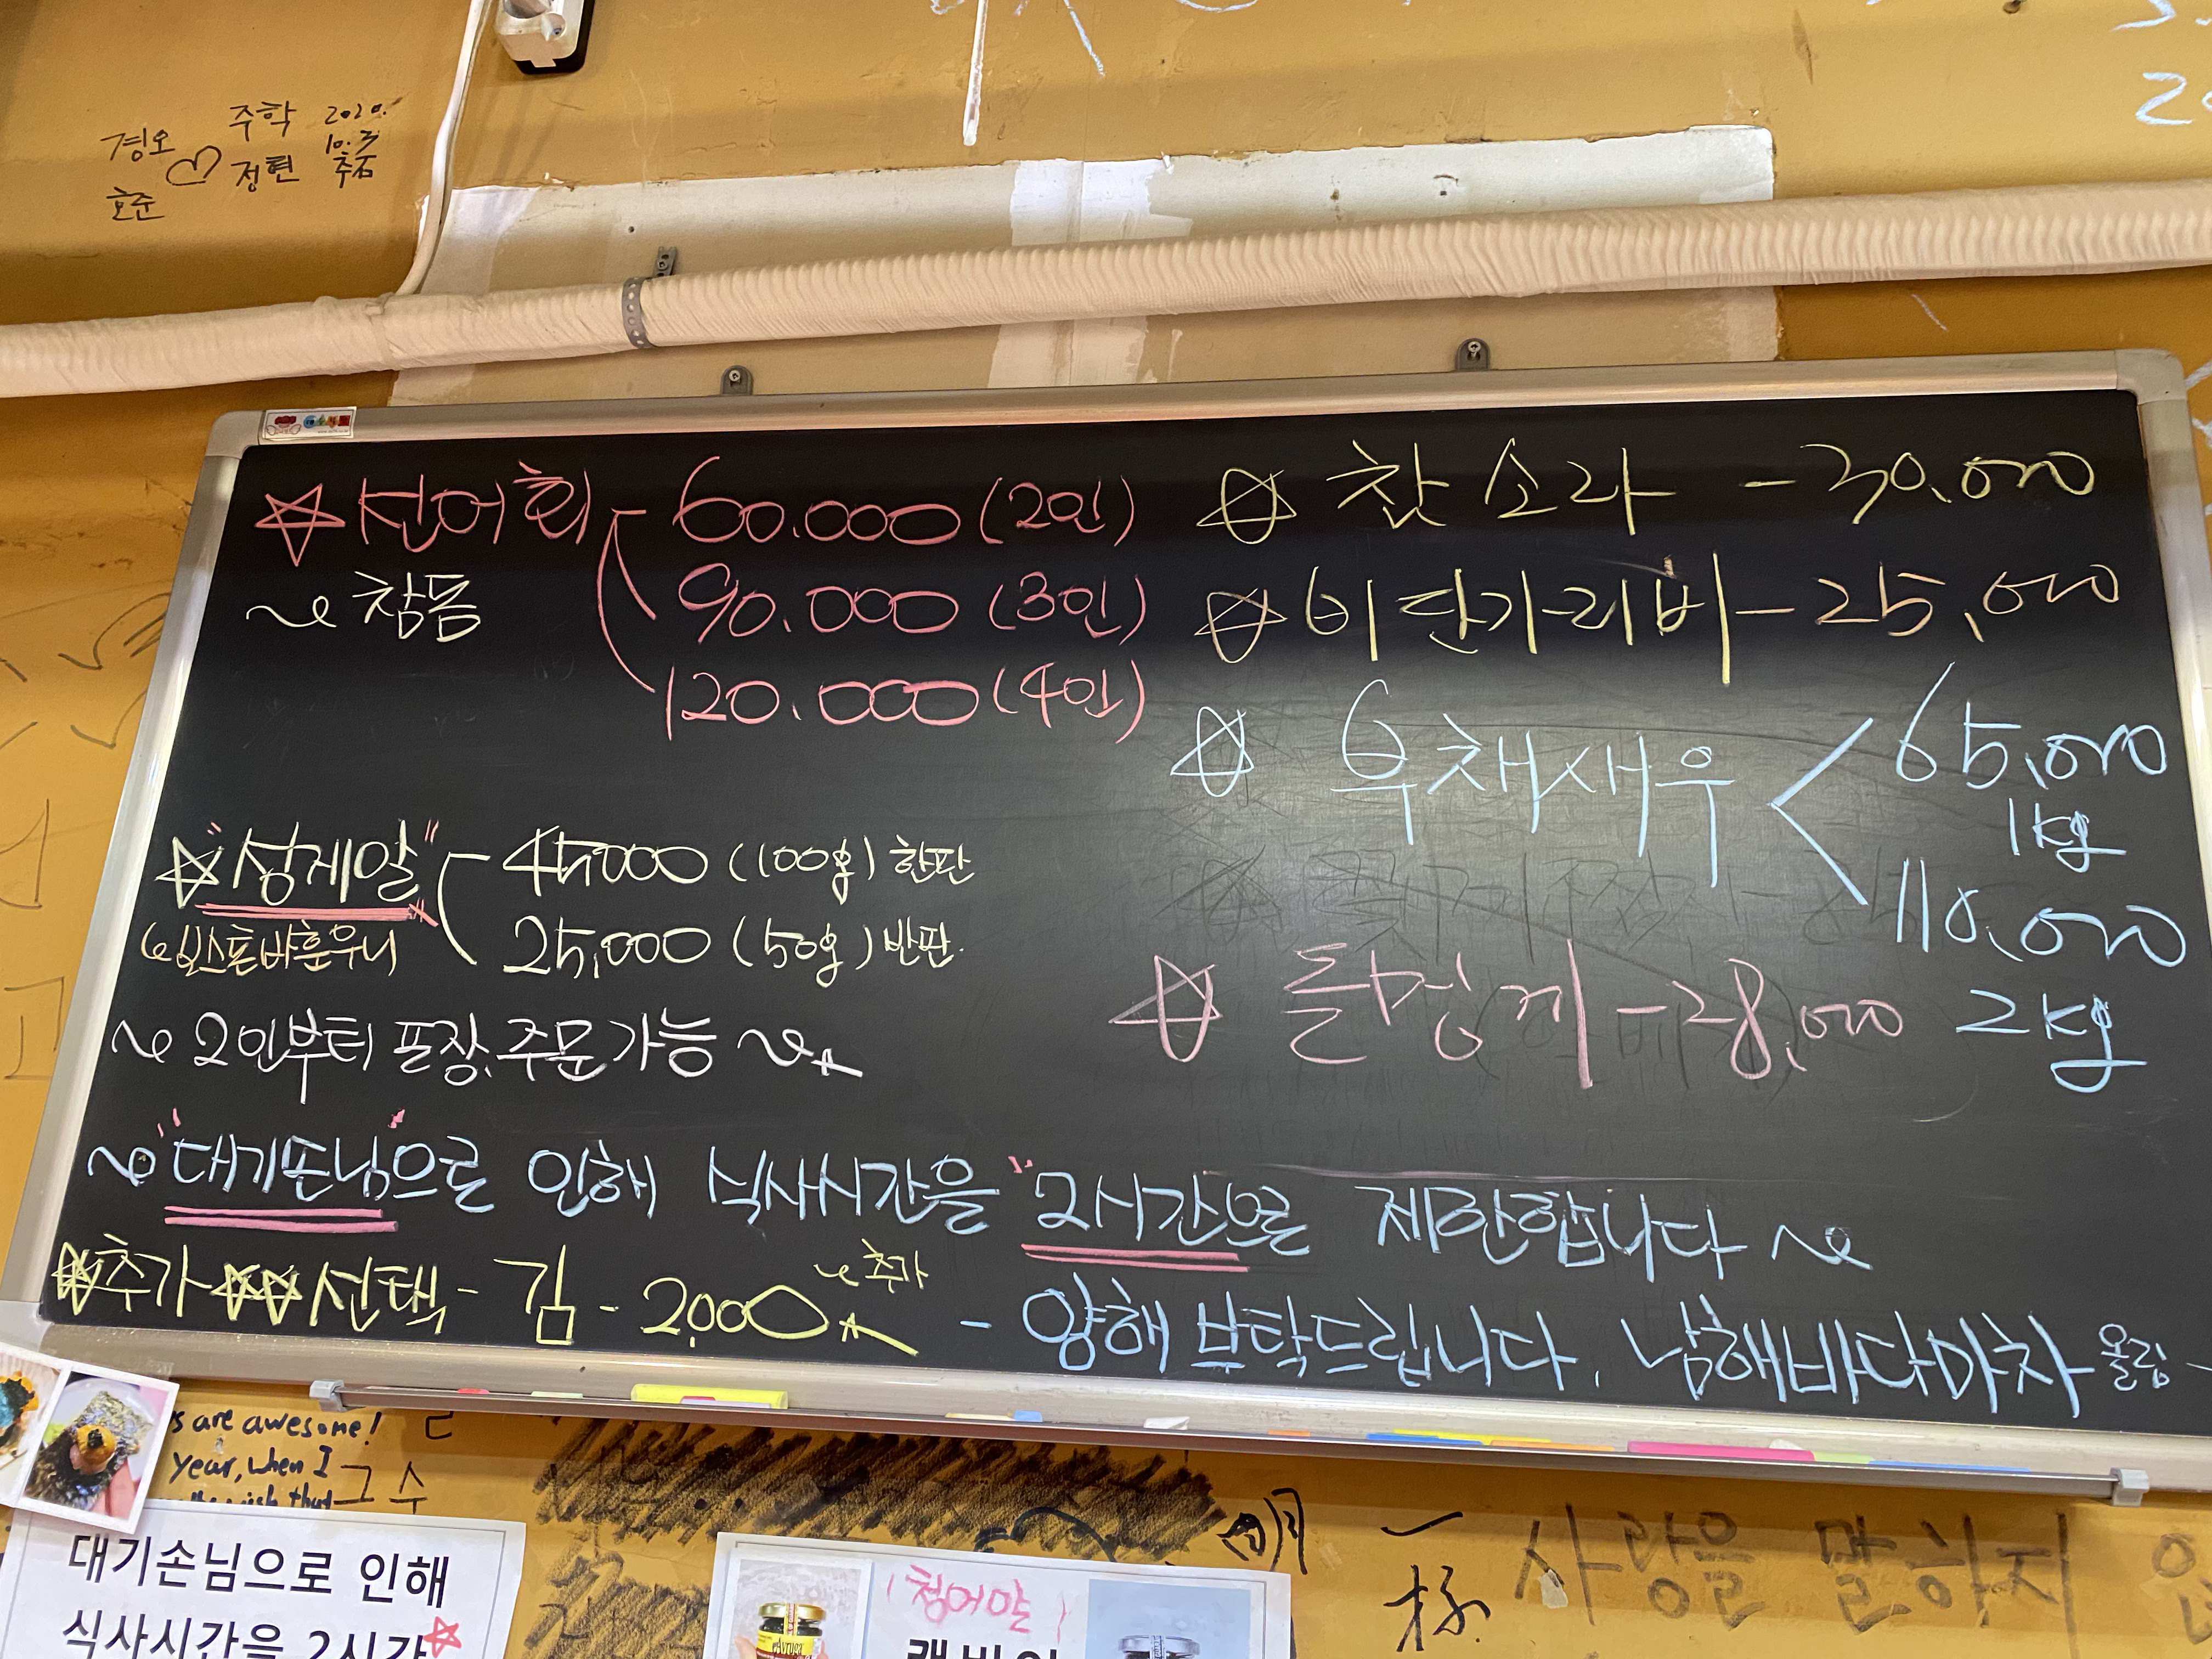 경오 ♡ 주학 2020.
호준 정편 10.3
추石
☆ 선어회 - 60.000 (2인)
~ 참돔 90.000 (3인)
120.000 (4인)
☆ "성게알" 45,000 (100g) 한판
보스톤바훈우니 25,000 (50g) 반판.
~ 2인부터 포장, 주문 가능 ~
☆ 참소라 - 30,000
☆ 비단가리비 - 25,000
☆ 부채새우 < 65,000
1kg
110,000
2kg
☆ 돌멍게 - 28,000
~ "대기손님"으로 인해 식사시간을 "2시간으로 제한합니다 ~
☆추가 ☆☆ 선택 - 김 - 2,000 ~추가
- 양해 부탁드립니다. 남해바다마차 올림 -
s are awesome!
year, when I
그 수
대기손님으로 인해
식사시간을 2시간
청어알
明
사랑을 말하지